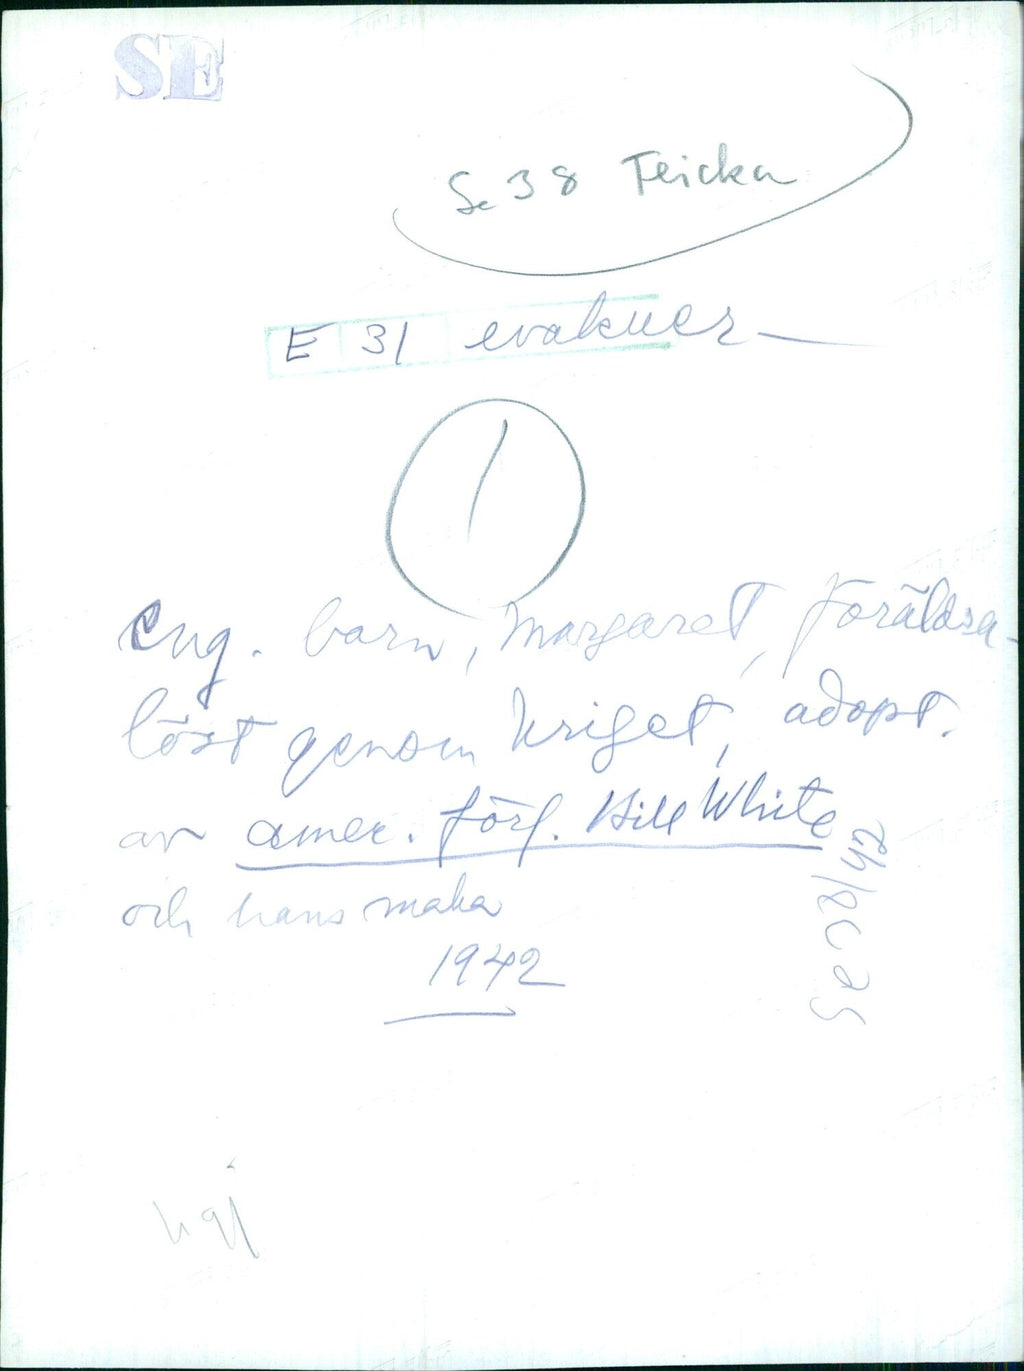 SE
Se 38 Feicka
E 31 evakuer
1
eng. barn, Margaret, föräldra-
löst genom kriget, adopt.
av amer. förf. Bill White
och hans maka
1942
Se 38/42